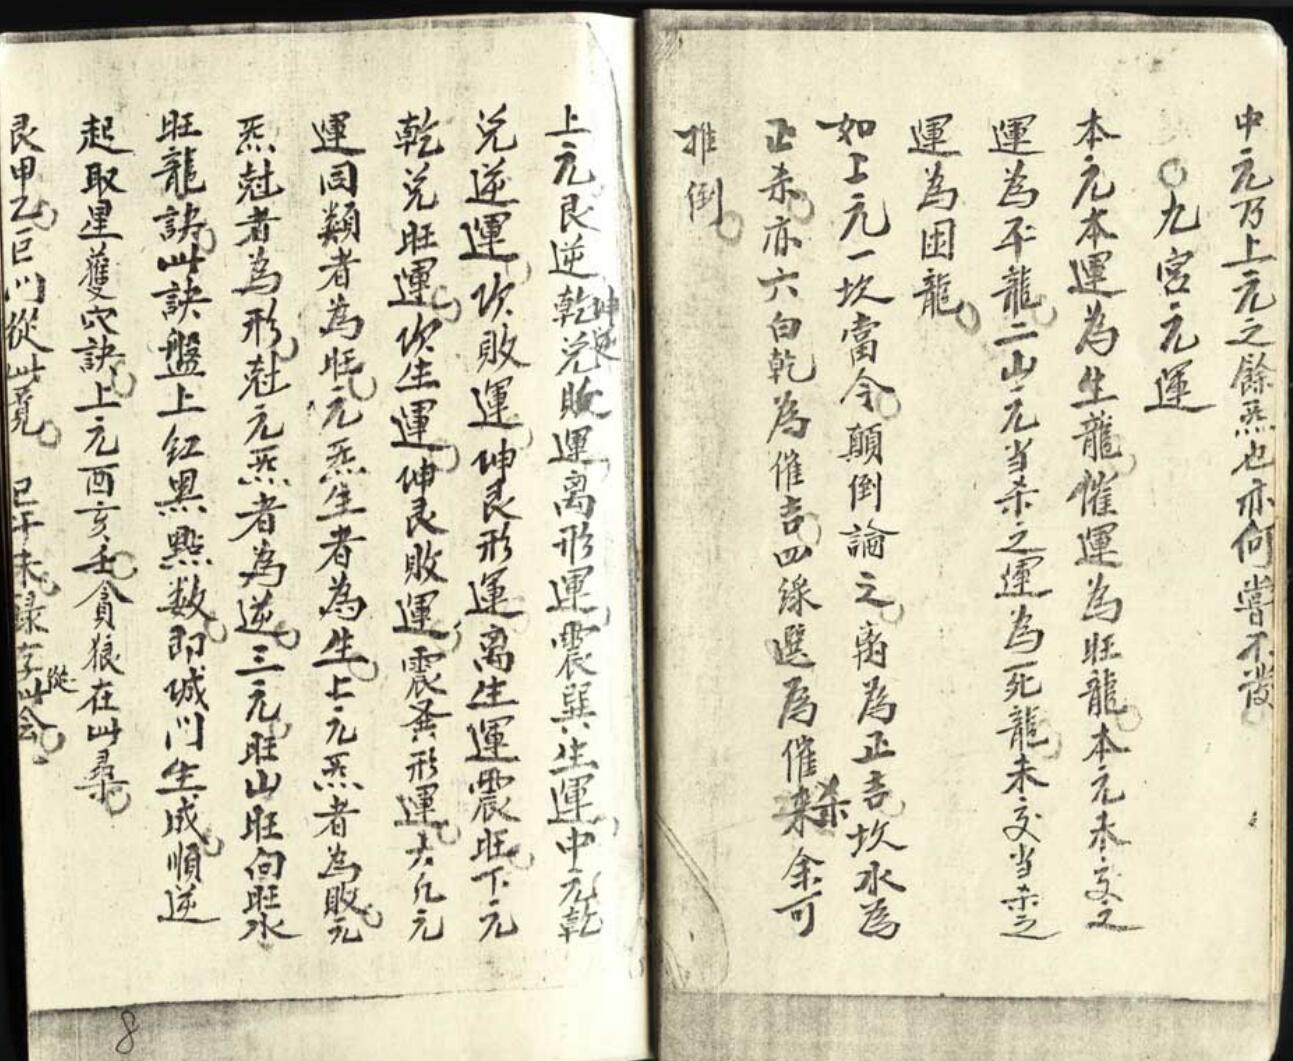 中元乃上元之餘炁也亦何嘗不發
○九宮元運
本元本運為生龍催運為旺龍本元未交之
運為平龍二山元当杀之運為死龍未交当杀之
運為困龍
如上元一坎當令顛倒論之离為正吉坎水為
正杀亦六白乾為催吉四綠巽為催杀余可
推倒
上元艮逆坤逆乾兑敗運离形運震巽生運中元乾
兑逆運坎敗運坤艮形運离生運震旺下元
乾兑旺運坎生運坤艮敗運震巽形運大凡元
運同類者為旺元炁生者為生上元炁者為敗元
炁尅者為形尅元炁者為逆三元旺山旺向旺水
旺龍訣此訣盤上红黑點数即城门生成順逆
起取星獲穴訣上元酉亥壬貪狼在此尋
艮甲乙巨门從此覓 巳午未祿存從此会
8